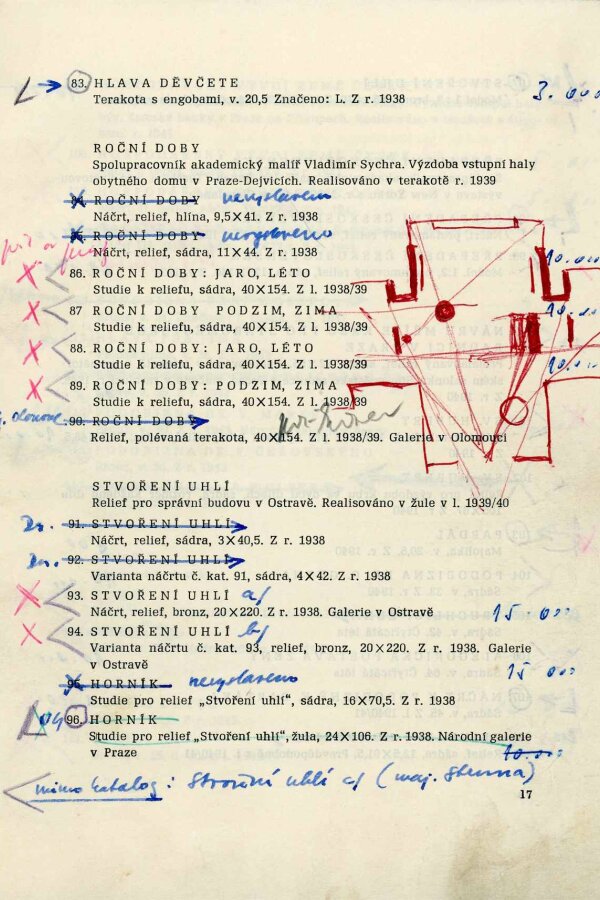 83. HLAVA DĚVČETE 3.000
Terakota s engobami, v. 20,5 Značeno: L. Z r. 1938
ROČNÍ DOBY
Spolupracovník akademický malíř Vladimír Sychra. Výzdoba vstupní haly
obytného domu v Praze-Dejvicích. Realisováno v terakotě r. 1939
ROČNÍ DOBY nevystaveno
Náčrt, relief, hlína, 9,5×41. Z r. 1938
ROČNÍ DOBY nevystaveno
Náčrt, relief, sádra, 11×44. Z r. 1938
86. ROČNÍ DOBY: JARO, LÉTO 10.000
Studie k reliefu, sádra, 40×154. Z l. 1938/39
87 ROČNÍ DOBY PODZIM, ZIMA 10.000
Studie k reliefu, sádra, 40×154. Z l. 1938/39
88. ROČNÍ DOBY: JARO, LÉTO 10.000
Studie k reliefu, sádra, 40×154. Z l. 1938/39
89. ROČNÍ DOBY: PODZIM, ZIMA
Studie k reliefu, sádra, 40×154. Z l. 1938/39
90. ROČNÍ DOBY
Relief, polévaná terakota, 40×154. Z l. 1938/39. Galerie v Olomouci
STVOŘENÍ UHLÍ
Relief pro správní budovu v Ostravě. Realisováno v žule v l. 1939/40
91. STVOŘENÍ UHLÍ
Náčrt, relief, sádra, 3×40,5. Z r. 1938
92. STVOŘENÍ UHLÍ
Varianta náčrtu č. kat. 91, sádra, 4×42. Z r. 1938
93. STVOŘENÍ UHLÍ a/
Náčrt, relief, bronz, 20×220. Z r. 1938. Galerie v Ostravě 15 000
94. STVOŘENÍ UHLÍ b/
Varianta náčrtu č. kat. 93, relief, bronz, 20×220. Z r. 1938. Galerie
v Ostravě 15 000
95. HORNÍK nevystaveno
Studie pro relief „Stvoření uhlí", sádra, 16×70,5. Z r. 1938
96. HORNÍK
Studie pro relief „Stvoření uhlí", žula, 24×106. Z r. 1938. Národní galerie
v Praze 10.000
mimo katalog: Stvoření uhlí a/ (maj.
17